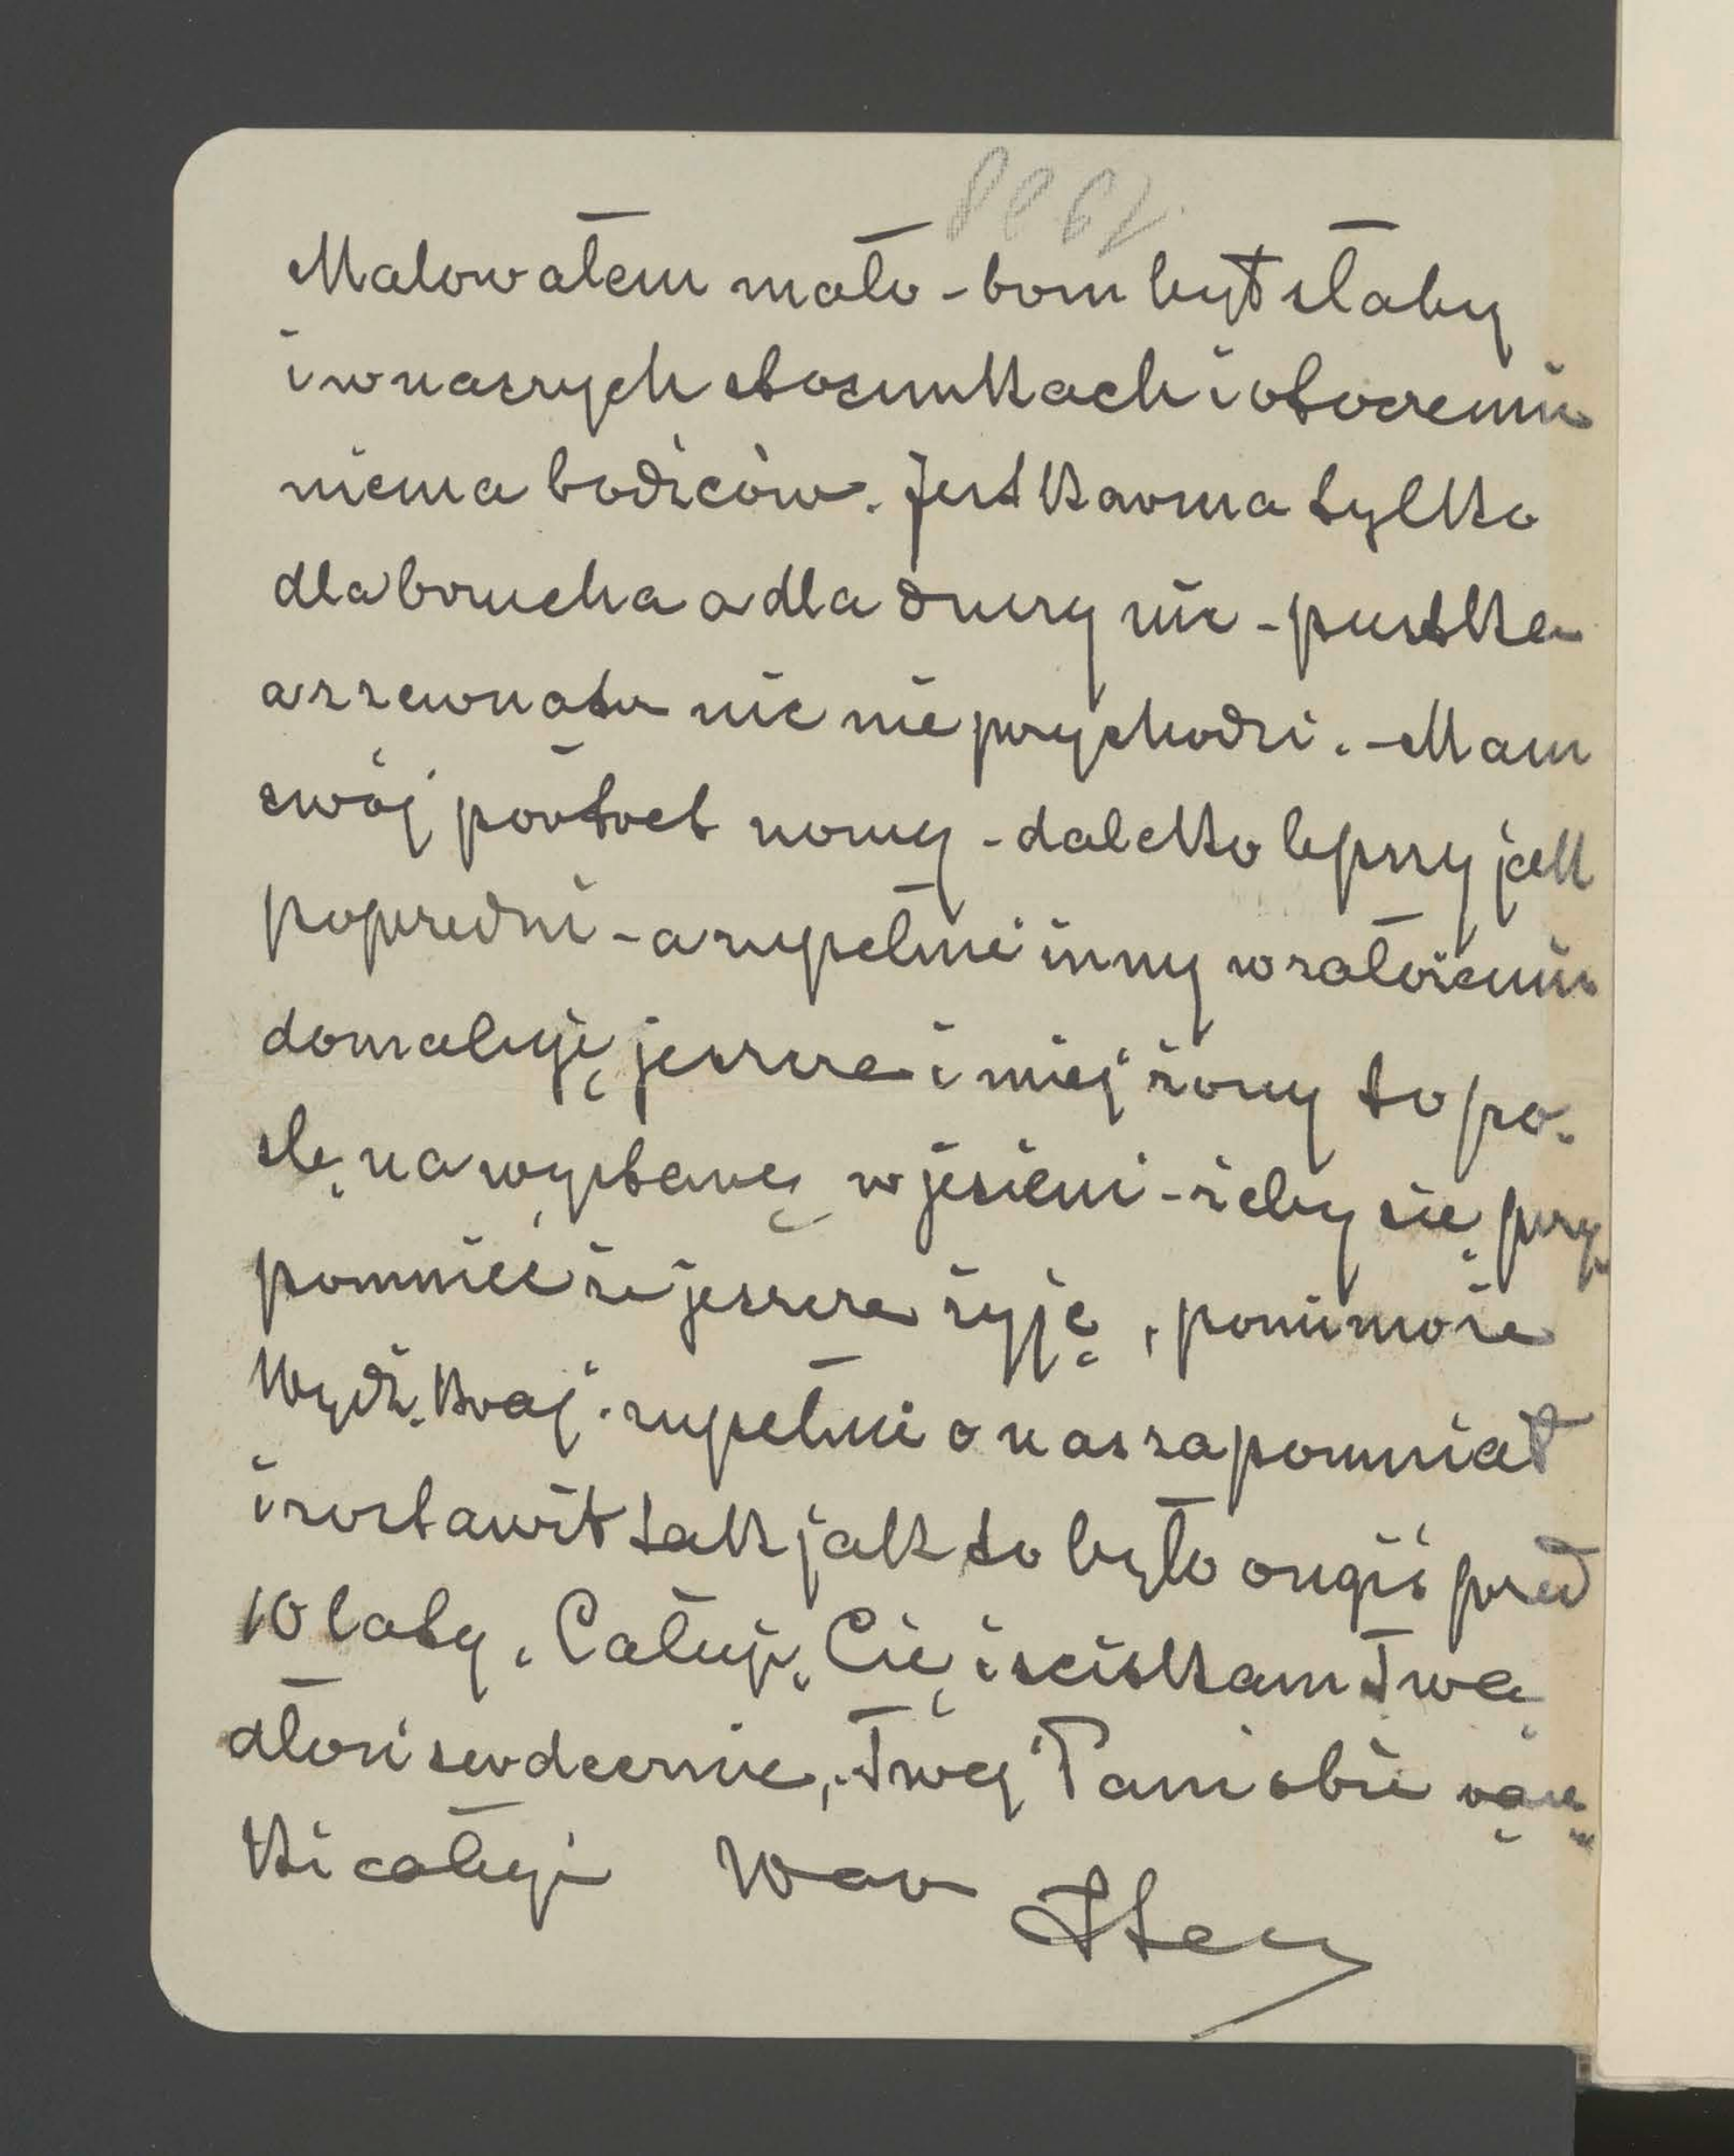 Malowałem mało - bom był słaby
i w naszych stosunkach i otoczeniu
niema bodźców. Jest karma tylko
dla brzucha a dla duszy nic - pustka
a z zewnątrz nic nie przychodzi. - Mam
swój portret nowy - daleko lepszy jak
poprzedni - a zupełnie inny w założeniu
domaluję jeszcze i miej żony to po-
slę na wystawę w jesieni - żeby się przy
pomnieć że jeszcze żyję, ponimoże
Wydź. Kraj. zupełnie o nas zapomniał
i zostawił tak jak to było ongiś przed
10 laty. Całuję Cię i ściskam Twą
dłoń serdecznie, Twej Pani obie rącz
ki całuję Wasz